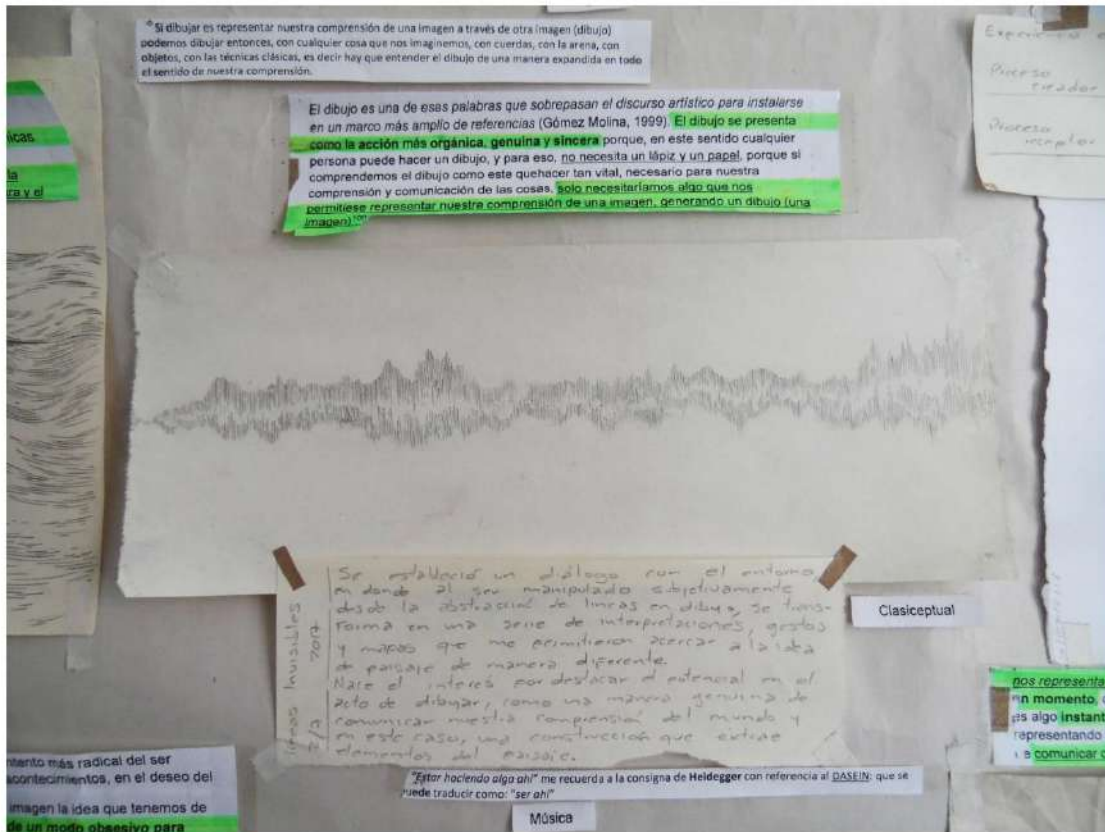 "Si dibujar es representar nuestra comprensión de una imagen a través de otra imagen (dibujo)
podemos dibujar entonces, con cualquier cosa que nos imaginemos, con cuerdas, con la arena, con
objetos, con las técnicas clásicas, es decir hay que entender el dibujo de una manera expandida en todo
el sentido de nuestra comprensión.
El dibujo es una de esas palabras que sobrepasan el discurso artístico para instalarse
en un marco más amplio de referencias (Gómez Molina, 1999). El dibujo se presenta
como la acción más orgánica, genuina y sincera porque, en este sentido cualquier
persona puede hacer un dibujo, y para eso, no necesita un lápiz y un papel, porque si
comprendemos el dibujo como este quehacer tan vital, necesario para nuestra
comprensión y comunicación de las cosas, solo necesitaríamos algo que nos
permitiese representar nuestra comprensión de una imagen, generando un dibujo (una
imagen)
Proceso
creador
Proceso
receptor
nicas
la
ra y el
Se estableció un diálogo con el entorno
en donde al ser manipulado subjetivamente
desde la abstracción de lineas en dibujo, se trans-
forma en una serie de interpretaciones, gestos
y mapas que me permitieron acercar a la idea
de paisaje de manera diferente.
Nace el interés por destacar el potencial en el
acto de dibujar, como una manera genuina de
comunicar nuestra comprensión del mundo y
en este caso, una construcción que extrae
elementos del paisaje.
líneas Invisibles
2017
Clasiceptual
nos representa
n momento,
es algo instant
representando
comunicar
"Estar haciendo algo ahí" me recuerda a la consigna de Heidegger con referencia al DASEIN: que se
puede traducir como: "ser ahí"
Música
mento más radical del ser
acontecimientos, en el deseo del
imagen la idea que tenemos de
de un modo obsesivo para